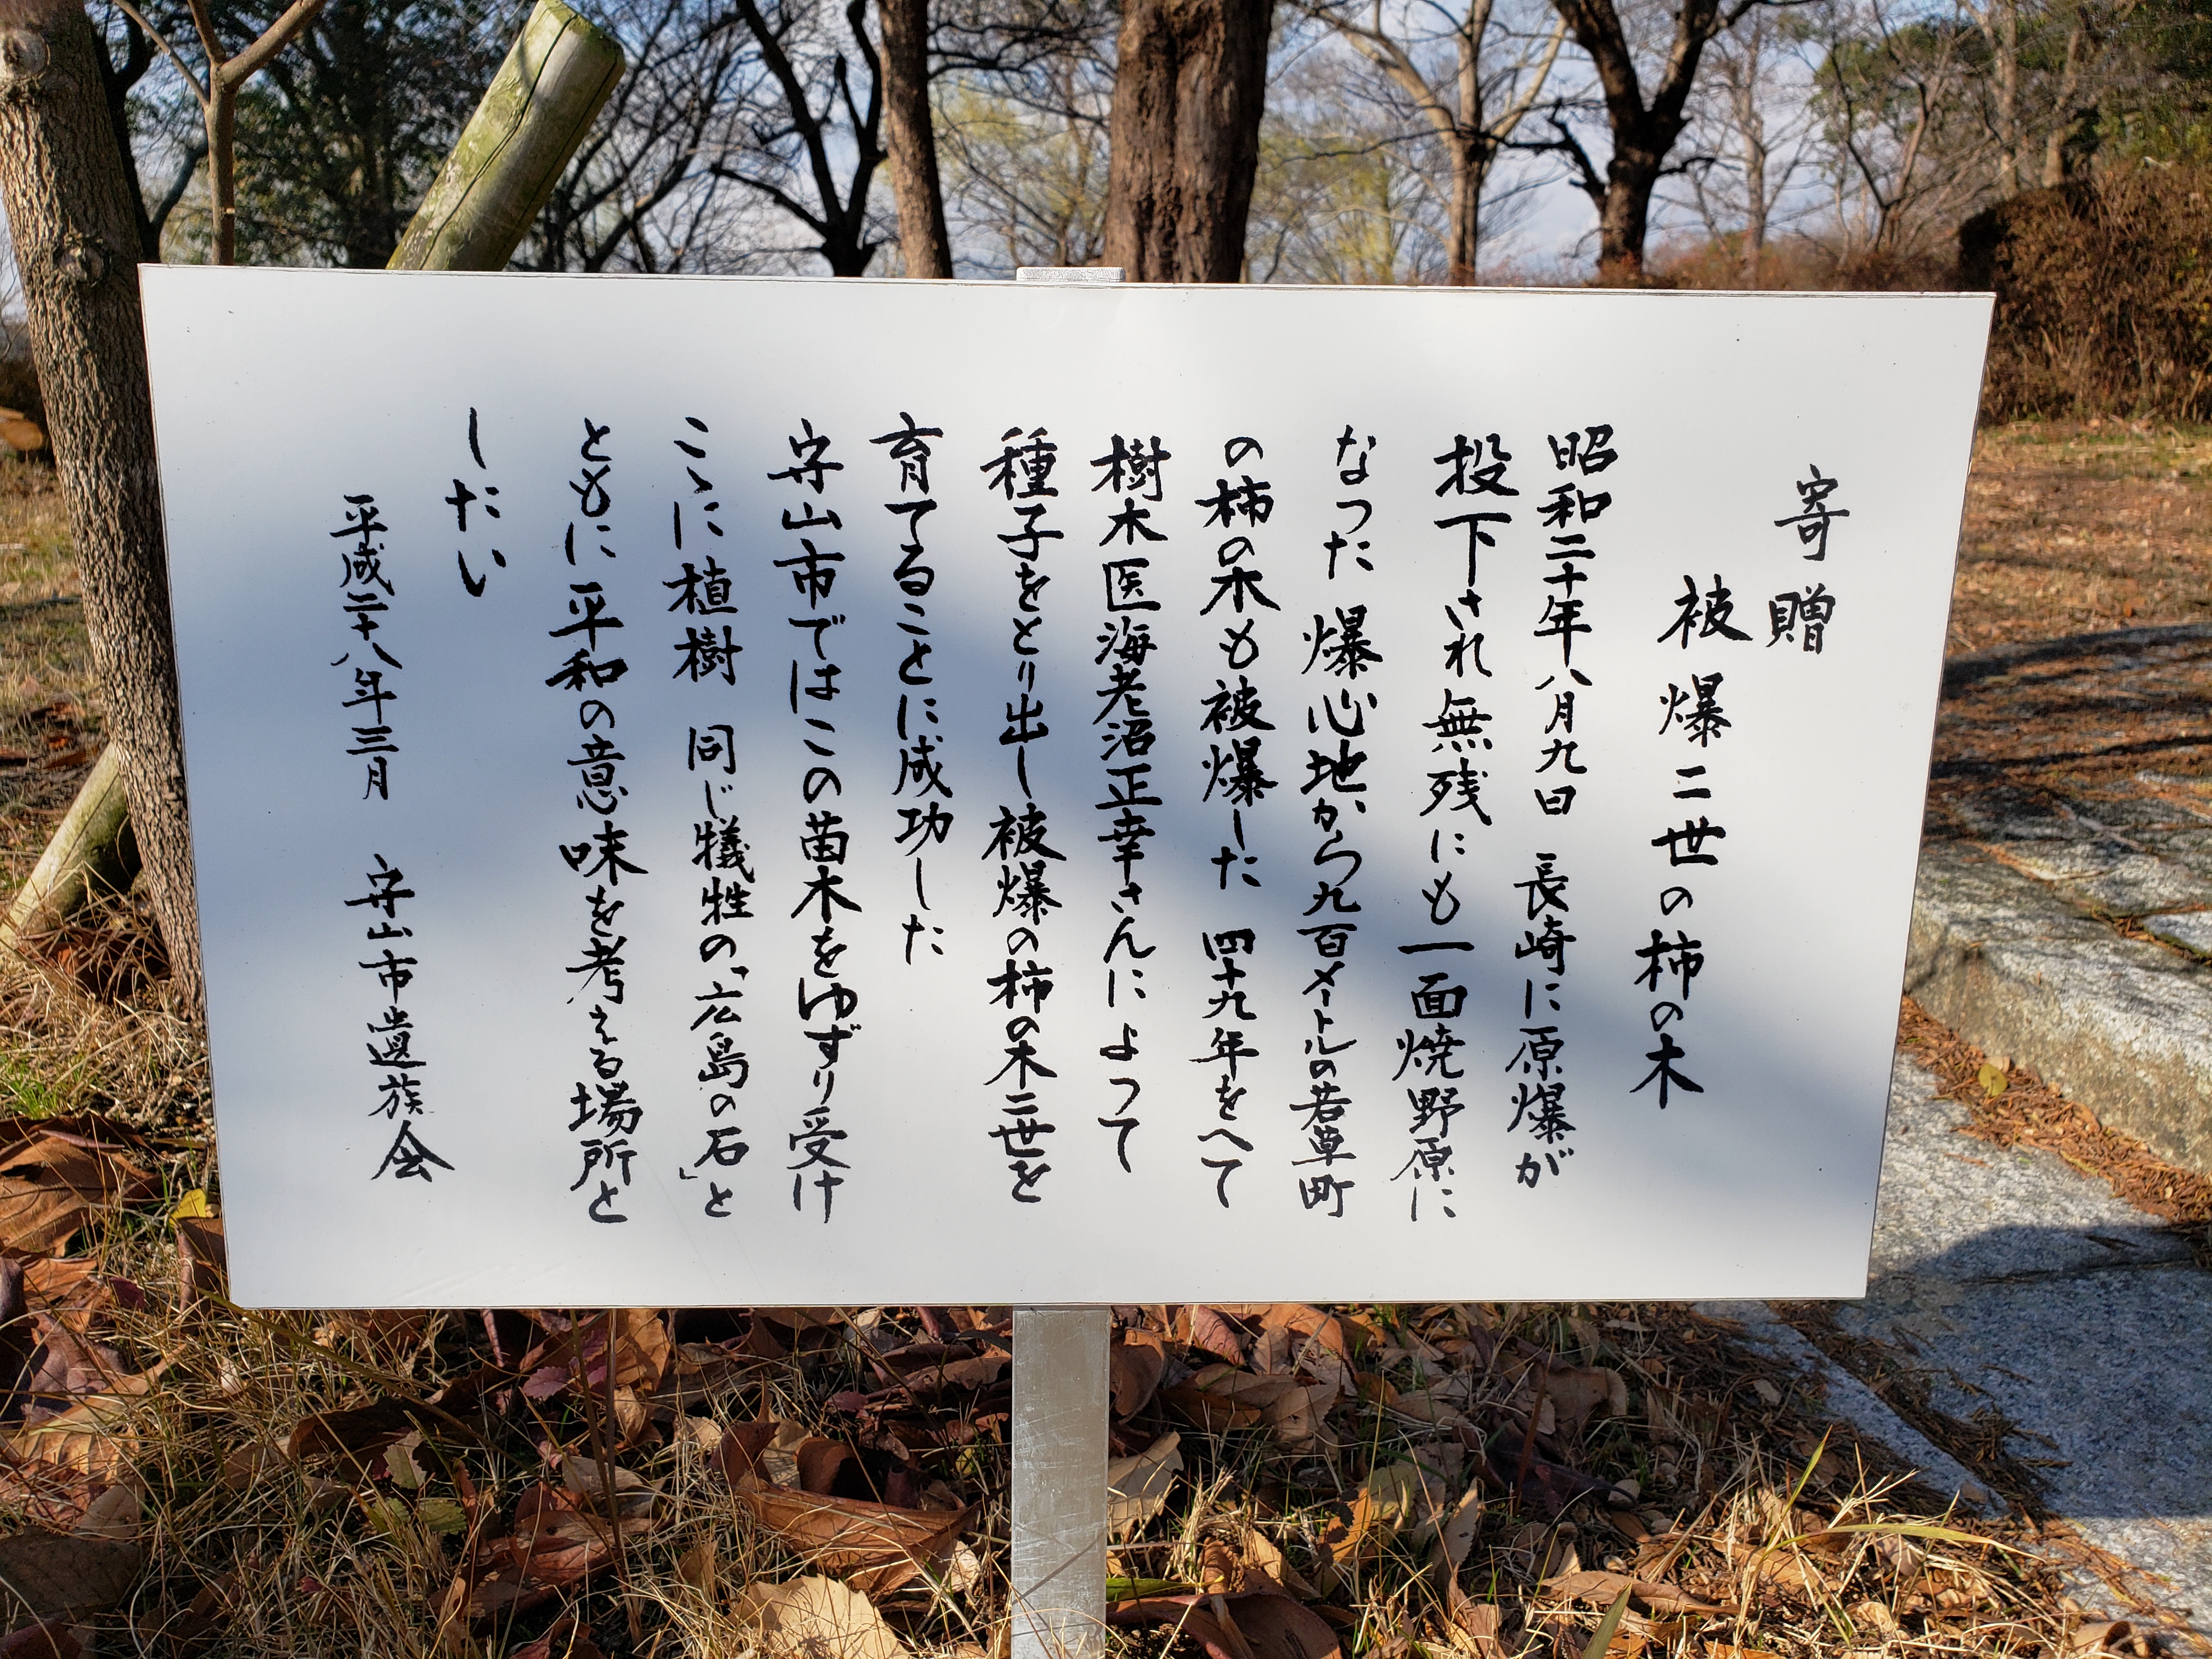 寄贈
被爆二世の柿の木
昭和二十年八月九日 長崎に原爆が
投下され無残にも一面焼野原に
なった 爆心地から九百メートルの若草町
の柿の木も被爆した 四十九年をへて
樹木医海老沼正幸さんによって
種子をとり出し被爆の柿の木二世を
育てることに成功した
守山市ではこの苗木をゆずり受け
こゝに植樹 同じ犠牲の「広島の石」と
ともに平和の意味を考える場所と
したい
平成二十八年三月 守山市遺族会